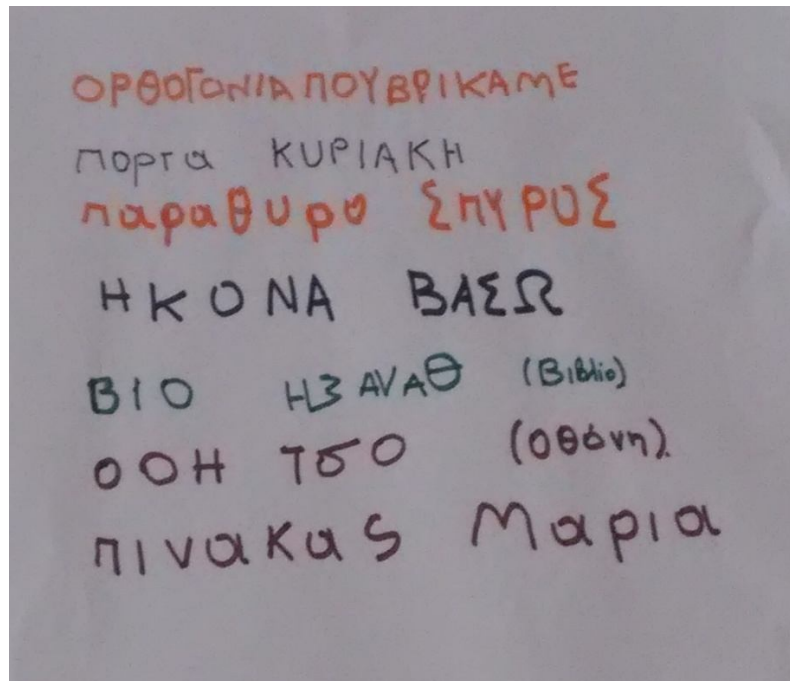 ΟΡΘΟΓΟΝΙΑ ΠΟΥ ΒΡΙΚΑΜΕ
πορτα ΚΥΡΙΑΚΗ
παραθυρο ΣΠΥΡΟΣ
ΗΚΟΝΑ ΒΑΣΩ
ΒΙΟ ΗΞΑΝΑΘ (Βιβλιο)
ΟΟΗ ΤσΟ (οθόνη).
πινακας Μαρια